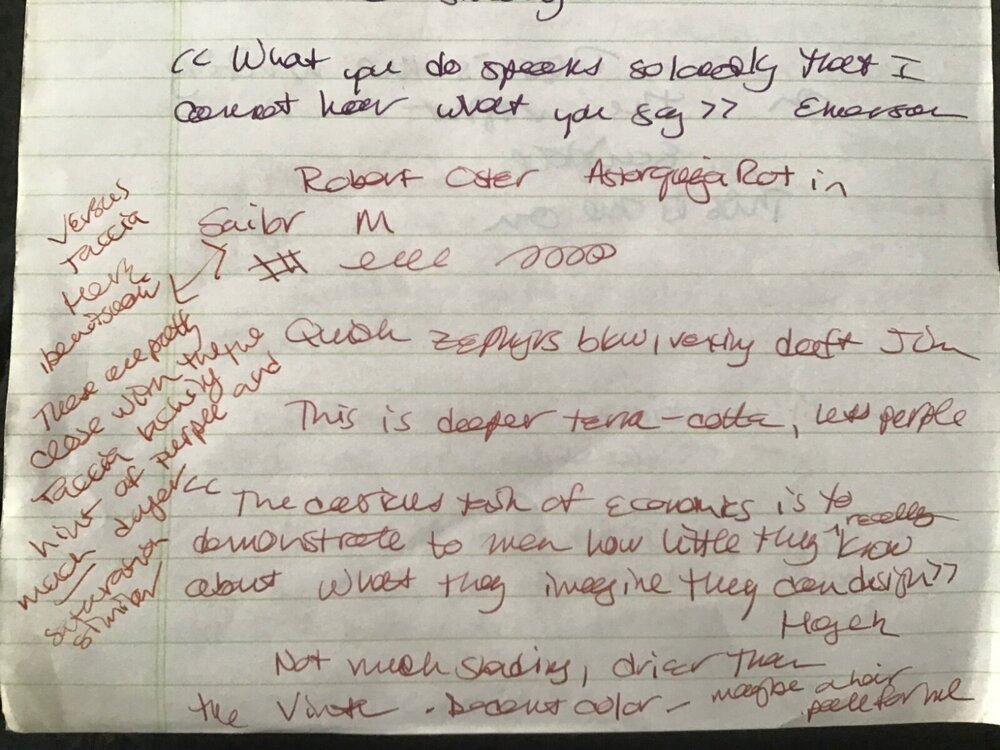 “What you do speaks so loudly that I
cannot hear what you say” Emerson
Robert Oster Astorquiza Rot in
Sailor M
eeee
Quick zephyrs blow, vexing daft Jim
This is deeper terra-cotta, less purple
“The curious task of Economics is to
demonstrate to men how little they really know
about what they imagine they can design”
Hayek
Not much shading, drier than
the Vinta. Decent color - maybe a hair
pale for me
versus
Taccia
Heri
benitsuchi
These are pretty
close with the
Taccia having the
hint of purple and
much dryer
Saturation
similar